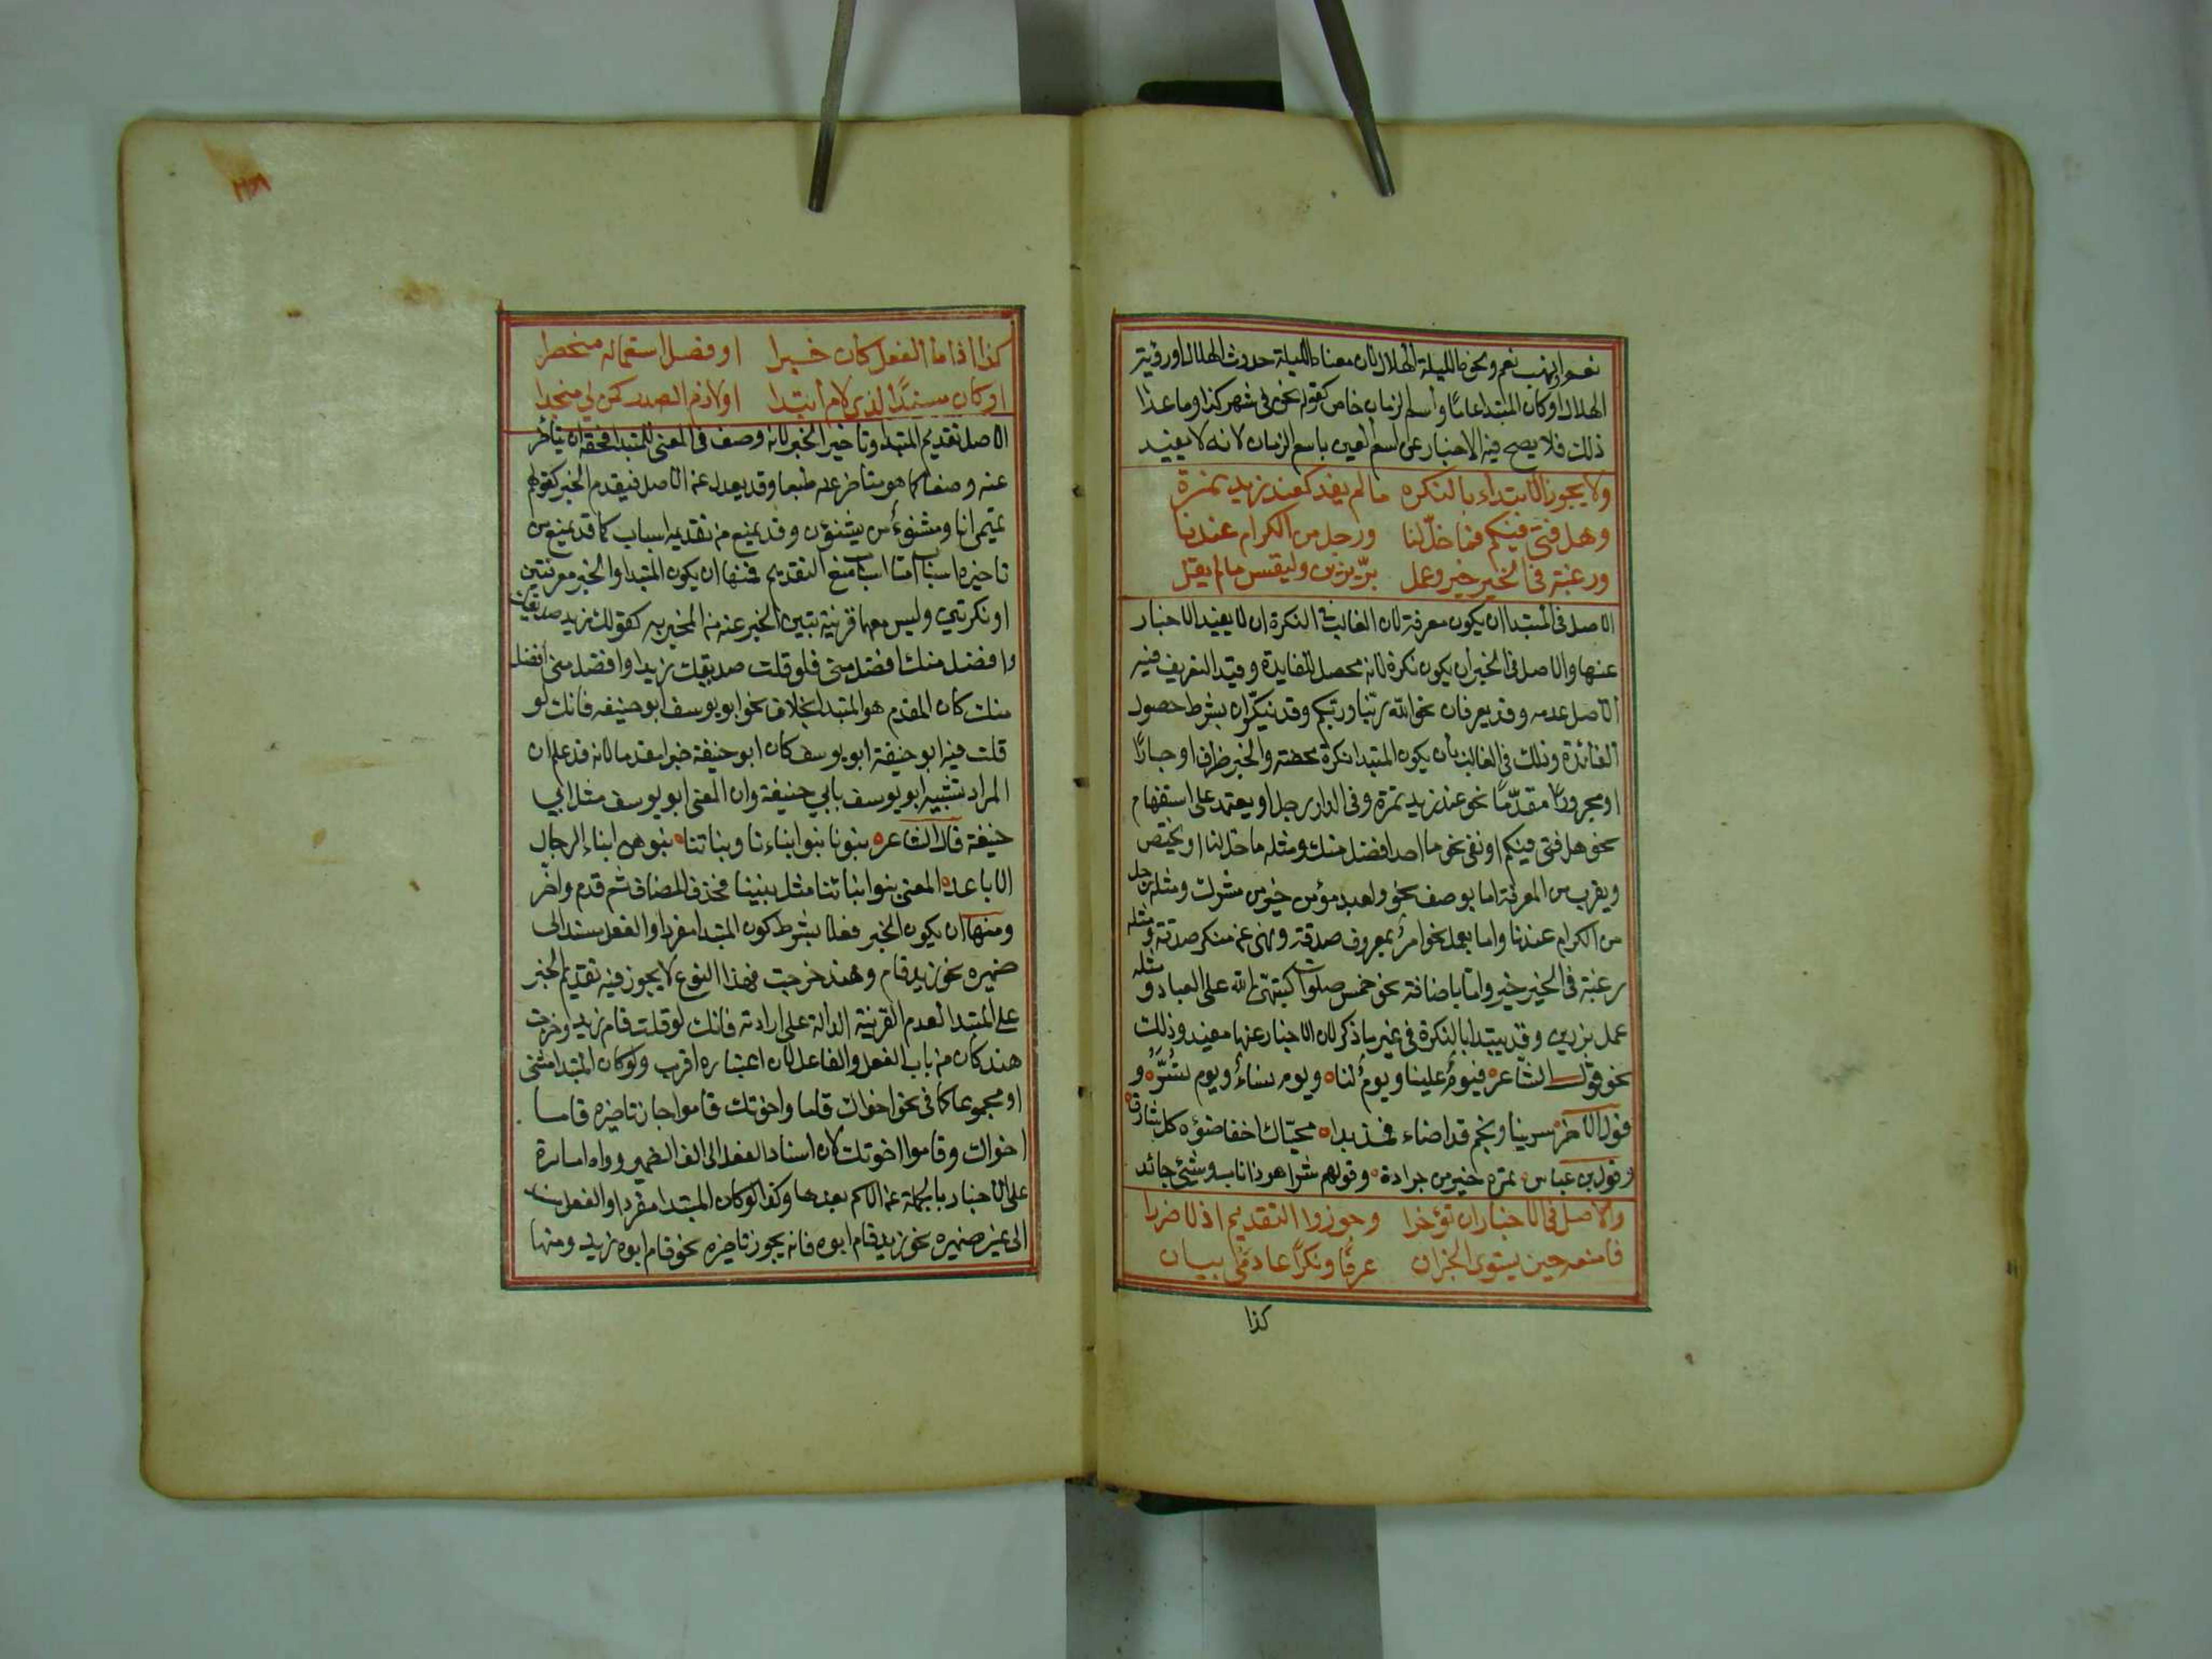 نعم او نهب نعم ونحو الليلة الهلال لان معناه الليلة حدوث الهلال او رؤية
الهلال او كان المبتدا عاما واسم الزمان خاص كقولهم نحن في شهر كذا وما عدا
ذلك فلا يصح فيه الاخبار عن اسم العين باسم الزمان لانه لا يفيد
ولا يجوز الابتداء بالنكره ما لم يفد كعند زيد نمرة
وهل فتى فيكم فما خلّ لنا ورجل من الكرام عندنا
ورغبة في الخير خير وعمل برّ يزين وليقس ما لم يقل
الاصل في المبتدا ان يكون معرفة لان الغالب في النكرة ان لا يفيد الاخبار
عنها والاصل في الخبر ان يكون نكرة لانه محصل للفايدة وقيد التعريف فيه
الاصل عدمه وقد يعرفان نحو الله ربنا وربكم وقد ينكّران بشرط حصول
الفائدة وذلك في الغالب بان يكون المبتدا نكرة محضة والخبر ظرفا او جارًا
او مجرورًا مقدّمًا نحو عند زيد نمرة وفي الدار رجل او يعتمد على استفهام
نحو هل فتى فيكم او نفى نحو ما احد افضل منك ومثله ما خل لنا او يختص
ويقرب من المعرفة اما بوصف نحو ولعبد مؤمن خير من مشرك ومثله رجل
من الكرام عندنا واما بعمل نحو امرٌ بمعروف صدقة ونهى عن منكر صدقة ومثله
رغبة في الخير خير واما باضافة نحو خمس صلوات كتبهنّ الله على العباد ومثله
عمل بر يزين وقد يبتدا بالنكرة في غير ما ذكر لان الاخبار عنها مفيد وذلك
نحو قول الشاعر فيومٌ علينا ويومٌ لنا ويوم نساءُ ويوم نُسَرُّ و
قول الاخر سرينا ونجم قد اضاء فمذ بدا محيّاك اخفا ضوؤه كل شارق
وقول بن عباس تمرة خير من جرادة وقولهم شر اهر ذا ناب وشئ جائد
والاصل في الاخبار ان تؤخرا وجوزوا التقديم اذ لا ضررا
فامنعه حين يستوى الجزان عرفًا ونكرًا عادمَى بيان
كذا
كذا اذا ما الفعل كان خبرا او قصد استعماله منحصرا
او كان مسندًا لذي لام ابتدا او لازم الصدر كمن لي منجدا
الاصل تقديم المبتدا وتاخير الخبر لانه وصف في المعنى للمبتدا فحقه ان يتأخر
عنه وضعا كما هو متاخر عنه طبعا وقد يعدل عن الاصل فيقدم الخبر كقولهم
تميمى انا ومشنوءٌ من يشنؤن وقد يمنع من تقديمه اسباب كما قد يمنع من
تاخيره اسباب اما اسباب منع التقديم فمنها ان يكون المبتدا والخبر معرفتين
او نكرتين وليس معهما قرينة تبين الخبر عنه من المخبر به كقولك زيد صديقك
وافضل منك افضل منى فلو قلت صديقك زيد او افضل منى افضل
منك كان المقدم هو المبتدا بخلاف نحو ابو يوسف ابو حنيفه فانك لو
قلت فيه ابو حنيفة ابو يوسف كان ابو حنيفة خبرا مقدما لانه قد علم ان
المراد تشبيه ابو يوسف بابي حنيفة وان المعنى ابو يوسف مثل ابي
حنيفة قال الشاعر بنونا بنوا ابناءنا وبناتنا بنوهن ابناء الرجال
الاباعد المعنى بنوا ابنائنا مثل بنينا فحذف المضاف ثم قدم واخّر
ومنها ان يكون الخبر فعلا بشرط كون المبتدا مفردا والفعل مسند الى
ضميره نحو زيد قام وهند خرجت فهذا النوع لا يجوز فيه تقديم الخبر
على المبتدا لعدم القرينة الدالة على ارادته فانك لو قلت قام زيد او خرجت
هند كان من باب الفعل والفاعل لان اعتباره اقرب ولو كان المبتدا مثنى
او مجموعا كما في نحو اخواك قاما واخوتك قاموا جاز تاخيره قاما
اخواك وقاموا اخوتك لان اسناد الفعل الى الف الضمير وواوه امارة
على الاخبار بالجملة عن الاسم بعدها وكذا لو كان المبتدا مفردا والفعل مسند
الى غير ضميره نحو زيد قام ابوه فانه يجوز تاخيره نحو قام ابوه زيد ومنها